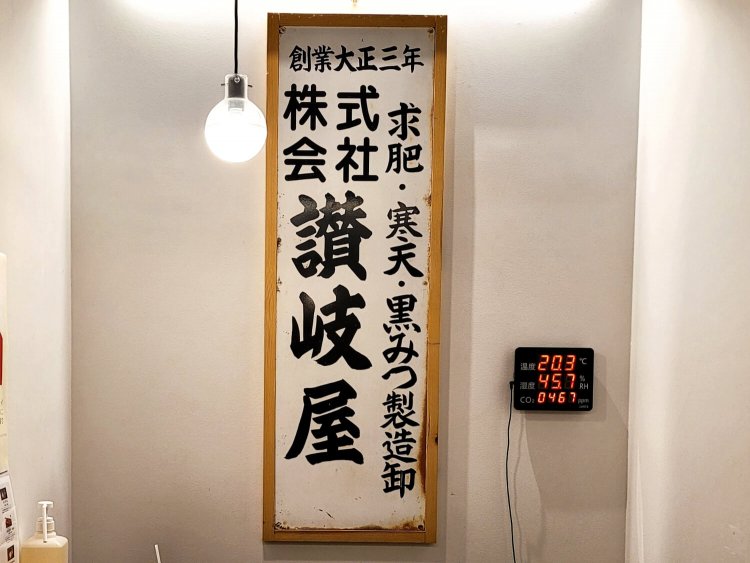 創業大正三年
求肥・寒天・黒みつ製造卸
株式会社
讃岐屋
温度 20.3 ℃
湿度 45.7 % RH
CO₂ 0467 ppm